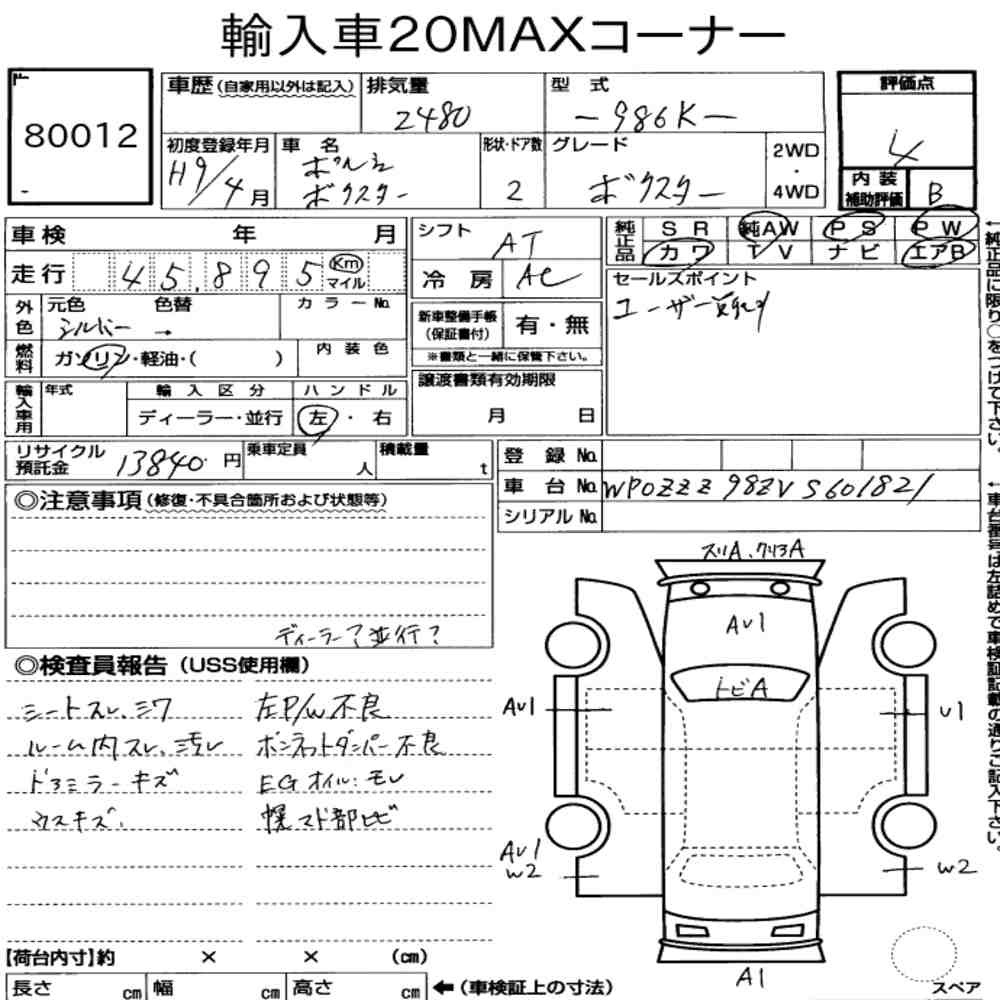 輸入車20MAXコーナー
80012
車歴(自家用以外は記入)
排気量
2480
型 式
-986K-
評価点
4
初度登録年月
H9/4月
車 名
ポルシェ
ボクスター
形状・ドア数
2
グレード
ボクスター
2WD
・
4WD
内 装
補助評価
B
車 検 年 月
シフト
AT
純正品
S R 純AW P S P W
カワ T V ナビ エアB
走 行 45,895 Km
マイル
冷 房 AC
セールスポイント
ユーザー買取り
外色
元色 色替 カラーNo.
シルバー →
新車整備手帳
(保証書付)
有・無
※書類と一緒に保管下さい。
燃料
ガソリン・軽油・( )
内 装 色
譲渡書類有効期限
月 日
輸入車用
年式
輸 入 区 分
ディーラー・並行
ハ ン ド ル
左・右
リサイクル
預託金
13840 円
乗車定員
人
積載量
t
登 録 No.
車 台 No. WP0ZZZ98ZVS601821
シリアル No.
◎注意事項(修復・不具合箇所および状態等)
ディーラー?並行?
◎検査員報告(USS使用欄)
シートスレ、シワ 左P/W不良
ルーム内スレ、汚れ ボンネットダンパー不良
ドアミラーキズ EGオイルモレ
ウスキズ. 幌マド部ヒビ
スリA、クリアA
AU1
トビA
AU1
U1
AU1
W2
W2
A1
スペア
【荷台内寸】約 × × (cm)
長さ cm 幅 cm 高さ cm ←(車検証上の寸法)
←純正品に限り○をつけて下さい。
←車台番号は左詰めで車検証記載の通りご記入下さい。